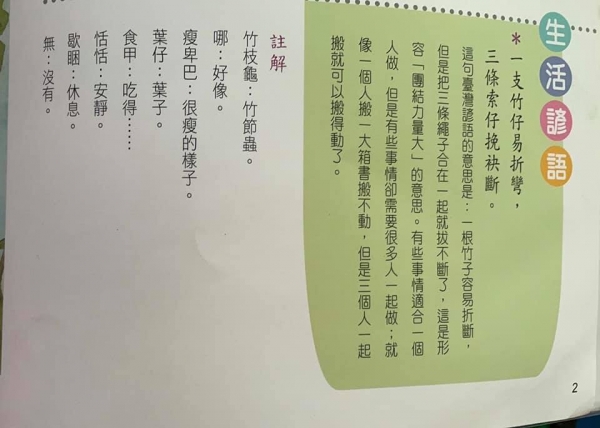 生活諺語
*一支竹仔易折彎，
三條索仔挽袂斷。
這句臺灣諺語的意思是：一根竹子容易折斷，
但是把三條繩子合在一起就拔不斷了，這是形
容「團結力量大」的意思。有些事情適合一個
人做，但是有些事情卻需要很多人一起做；就
像一個人搬一大箱書搬不動，但是三個人一起
搬就可以搬得動了。
註解
竹枝龜：竹節蟲。
哪：好像。
瘦卑巴：很瘦的樣子。
葉仔：葉子。
食甲：吃得……
恬恬：安靜。
歇睏：休息。
無：沒有。
2